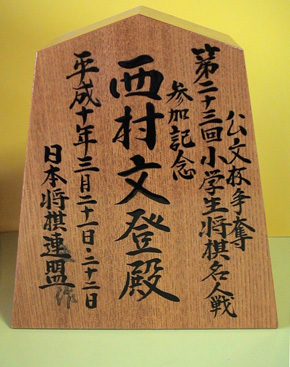 公文杯争奪
第二十三回小学生将棋名人戦
参加記念
西村文登殿
平成十年三月二十一日・二十二日
日本将棋連盟